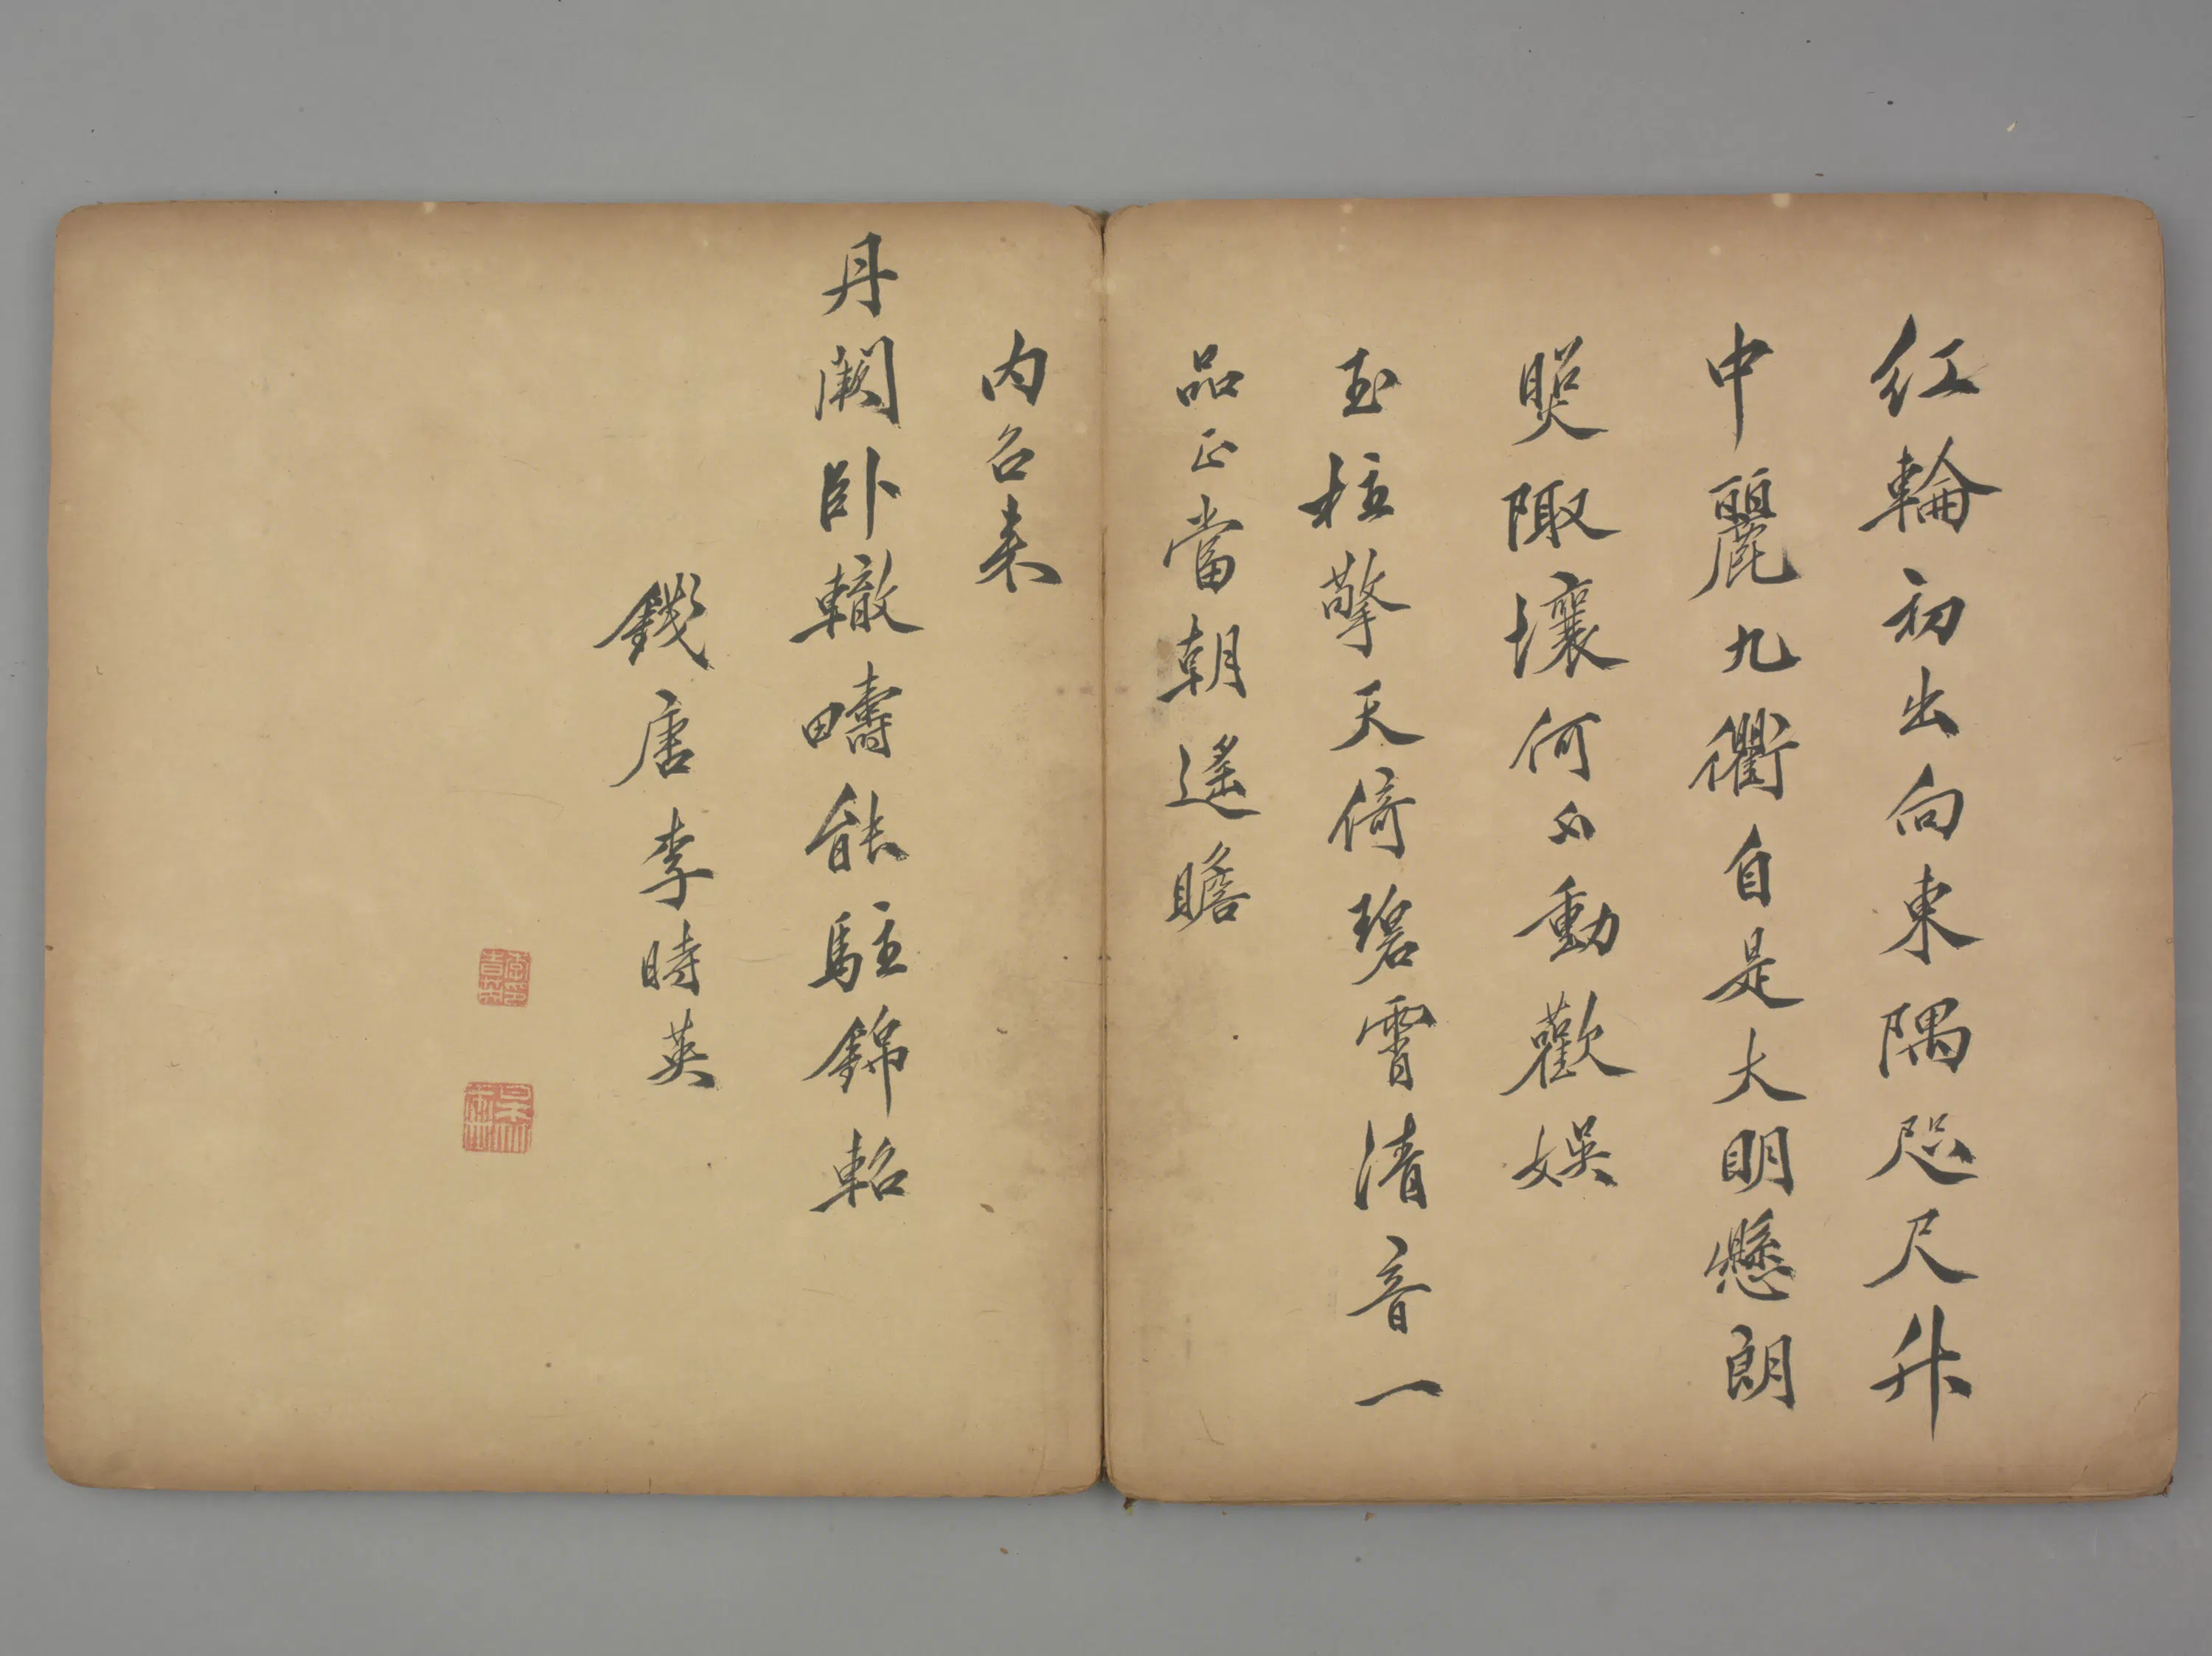 紅輪初出向東隅咫尺升
中麗九衢自是大明懸朗
照陬壤何不動歡娛
玉柱擎天倚碧霄清音一
品正當朝遙瞻
内召来
丹闕卧轍疇能駐錦軺
錢唐李時英